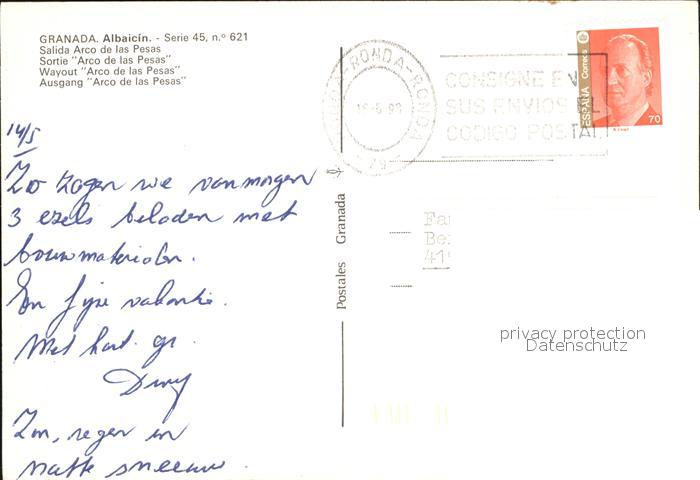 GRANADA. Albaicín. - Serie 45, n.º 621
Salida Arco de las Pesas
Sortie "Arco de las Pesas"
Wayout "Arco de las Pesas"
Ausgang "Arco de las Pesas"
RONDA-RONDA
CONSIGNE EN
SUS ENVIOS EL
CODIGO POSTAL
ESPAÑA Correos
70
14/5
Zo zagen we vanmorgen
3 ezels beladen met
bouwmaterialen.
En fijne vakantie.
Met hart. gr.
Zon, regen en
natte sneeuw.
Postales Granada
Fa
Be
41
privacy protection
Datenschutz